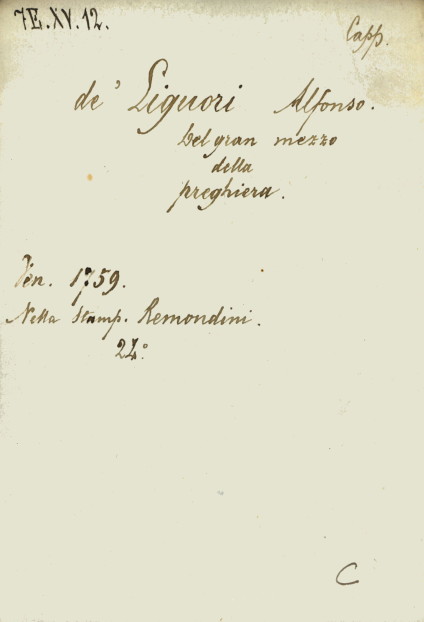 7E.XV.12.
Capp.
de' Liguori Alfonso.
Del gran mezzo
della
preghiera.
Ven. 1759.
Nella Stamp. Remondini.
24°
C